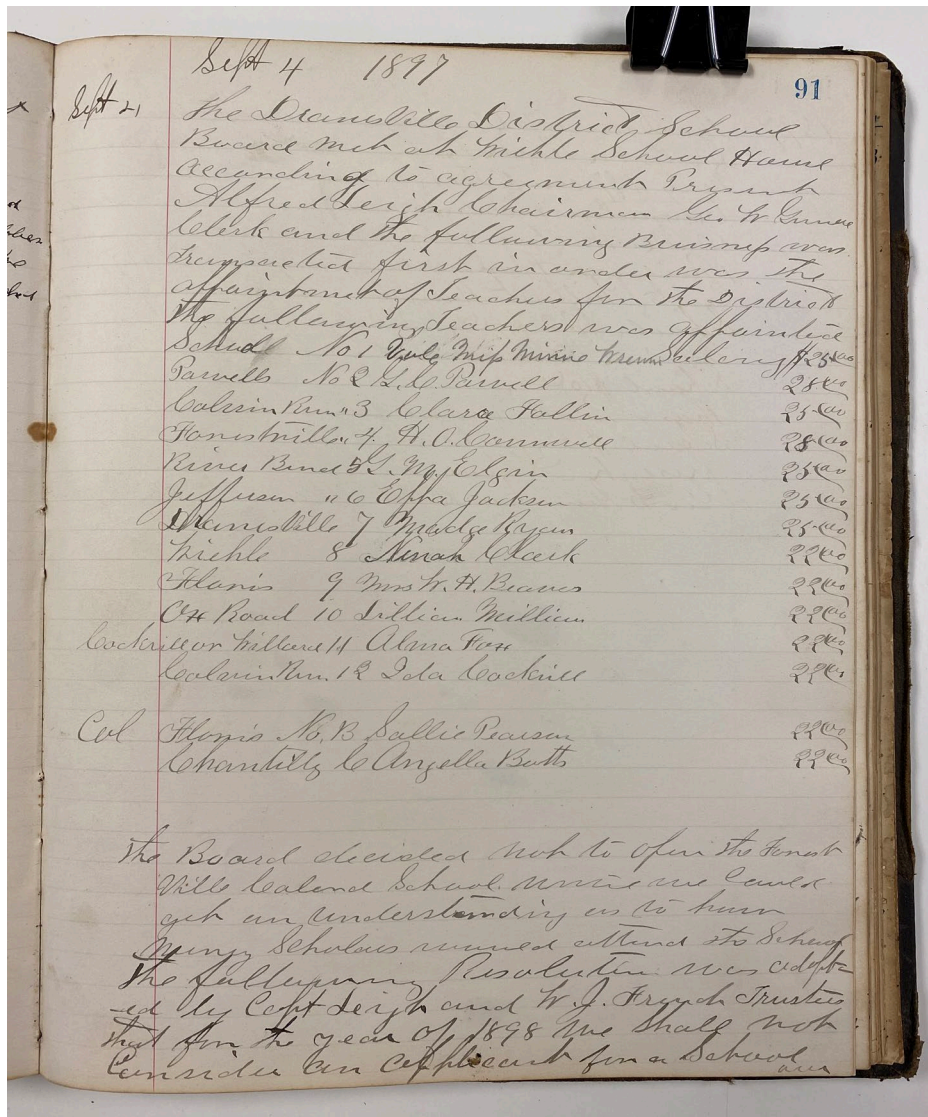 Sept 4 1897
91
Sept 4
the Dranisville District School
Board met at Wiehle School House
according to agreement Present
Alfred Leigh Chairman Geo W. Gunnell
Clerk and the following Buisness was
transacted first in order was the
appointment of Teachers for the District
the following Teachers was appointed
School No 1 Vale Miss Minnie Salary $25.00
Powells No 2 G. C. Powell 28.00
Colvin Run " 3 Clara Follin 25.00
Forestville " 4 H. O. Cornwell 28.00
River Bend 5 G. M. Elgin 25.00
Jefferson " 6 Effa Jackson 25.00
Dranisville 7 Madge Ryan 25.00
Wiehle 8 Ninah Clark 22.00
Floris 9 Mrs W. H. Beavers 22.00
Ox Road 10 Lillian Millian 22.00
Cockrill or Willard 11 Alma Fox 22.00
Colvin Run 12 Ida Cockrill 22.00
Col Floris No. B Sallie Pearson 22.00
Chantilly C Angella Botts 22.00
the Board decided not to open the Forest
Ville Colord School untill we Could
get an understanding as to how
many Scholars would attend sto School
the following Resolution was adopt-
ed by Capt Leigh and W. J. French Trustees
that for the year of 1898 we shall not
Consider an applicant for a School